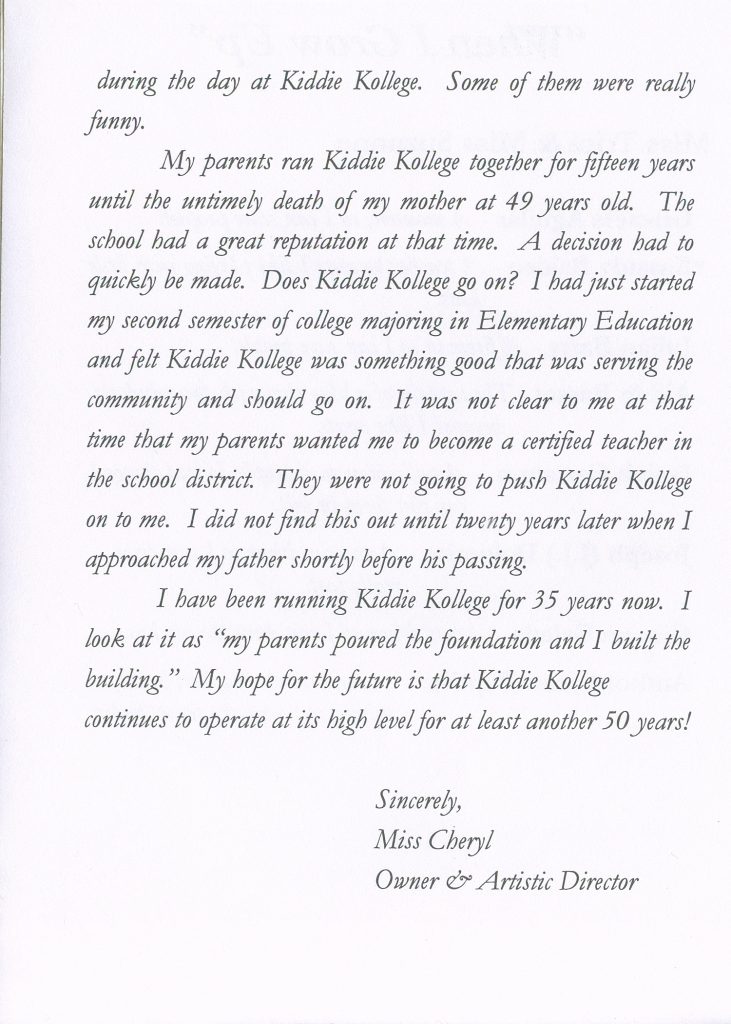 during the day at Kiddie Kollege. Some of them were really
funny.
My parents ran Kiddie Kollege together for fifteen years
until the untimely death of my mother at 49 years old. The
school had a great reputation at that time. A decision had to
quickly be made. Does Kiddie Kollege go on? I had just started
my second semester of college majoring in Elementary Education
and felt Kiddie Kollege was something good that was serving the
community and should go on. It was not clear to me at that
time that my parents wanted me to become a certified teacher in
the school district. They were not going to push Kiddie Kollege
on to me. I did not find this out until twenty years later when I
approached my father shortly before his passing.
I have been running Kiddie Kollege for 35 years now. I
look at it as “my parents poured the foundation and I built the
building.” My hope for the future is that Kiddie Kollege
continues to operate at its high level for at least another 50 years!
Sincerely,
Miss Cheryl
Owner & Artistic Director